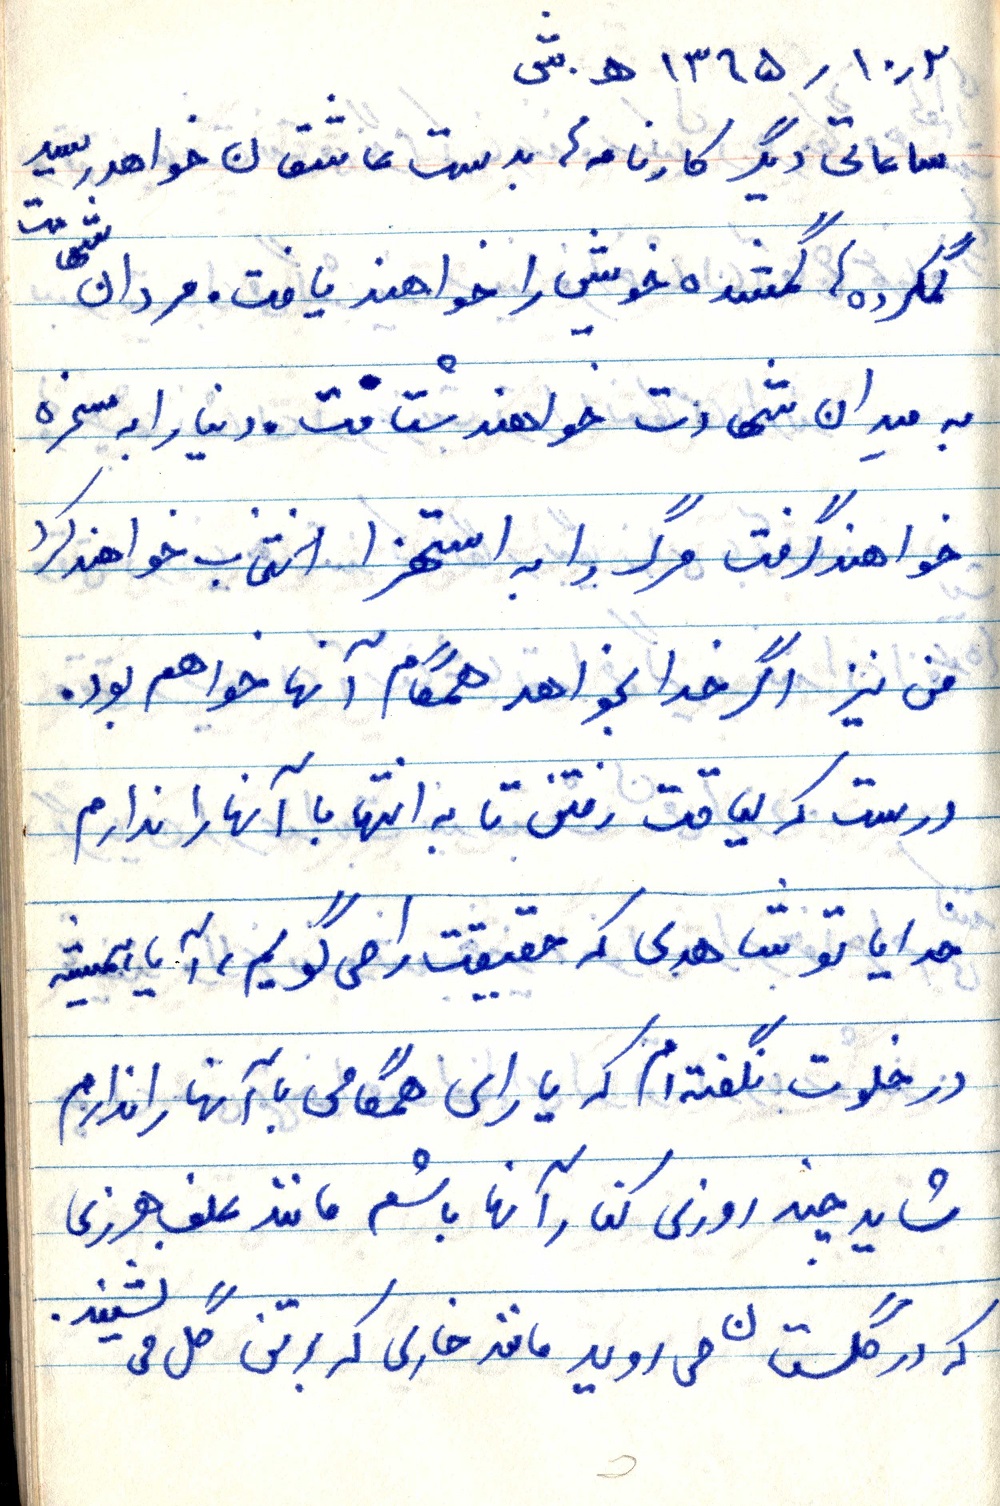 ۲ر۱۰ر۱۳۶۵ ه.ش
ساعاتی دیگر کارنامه‌ها بدست عاشقان خواهد رسید
گمکرده‌ها گمشده خویش را خواهند یافت. مردان شهادت
به میدان شهادت خواهند شتافت. دنیا را به سخره
خواهند گرفت مرگ را به استهزا انتخاب خواهند کرد
من نیز اگر خدا بخواهد همگام آنها خواهم بود.
درست که لیاقت رفتن تا به انتها با آنها را ندارم
خدایا تو شاهدی که حقیقت را می گویم، آیا همیشه
در خلوت نگفته‌ام که یارای همگامی با آنها را ندارم
شاید چند روزی کنار آنها باشم مانند علف هرزی
که در گلستان می روید مانند خاری که بر تن گل می نشیند.